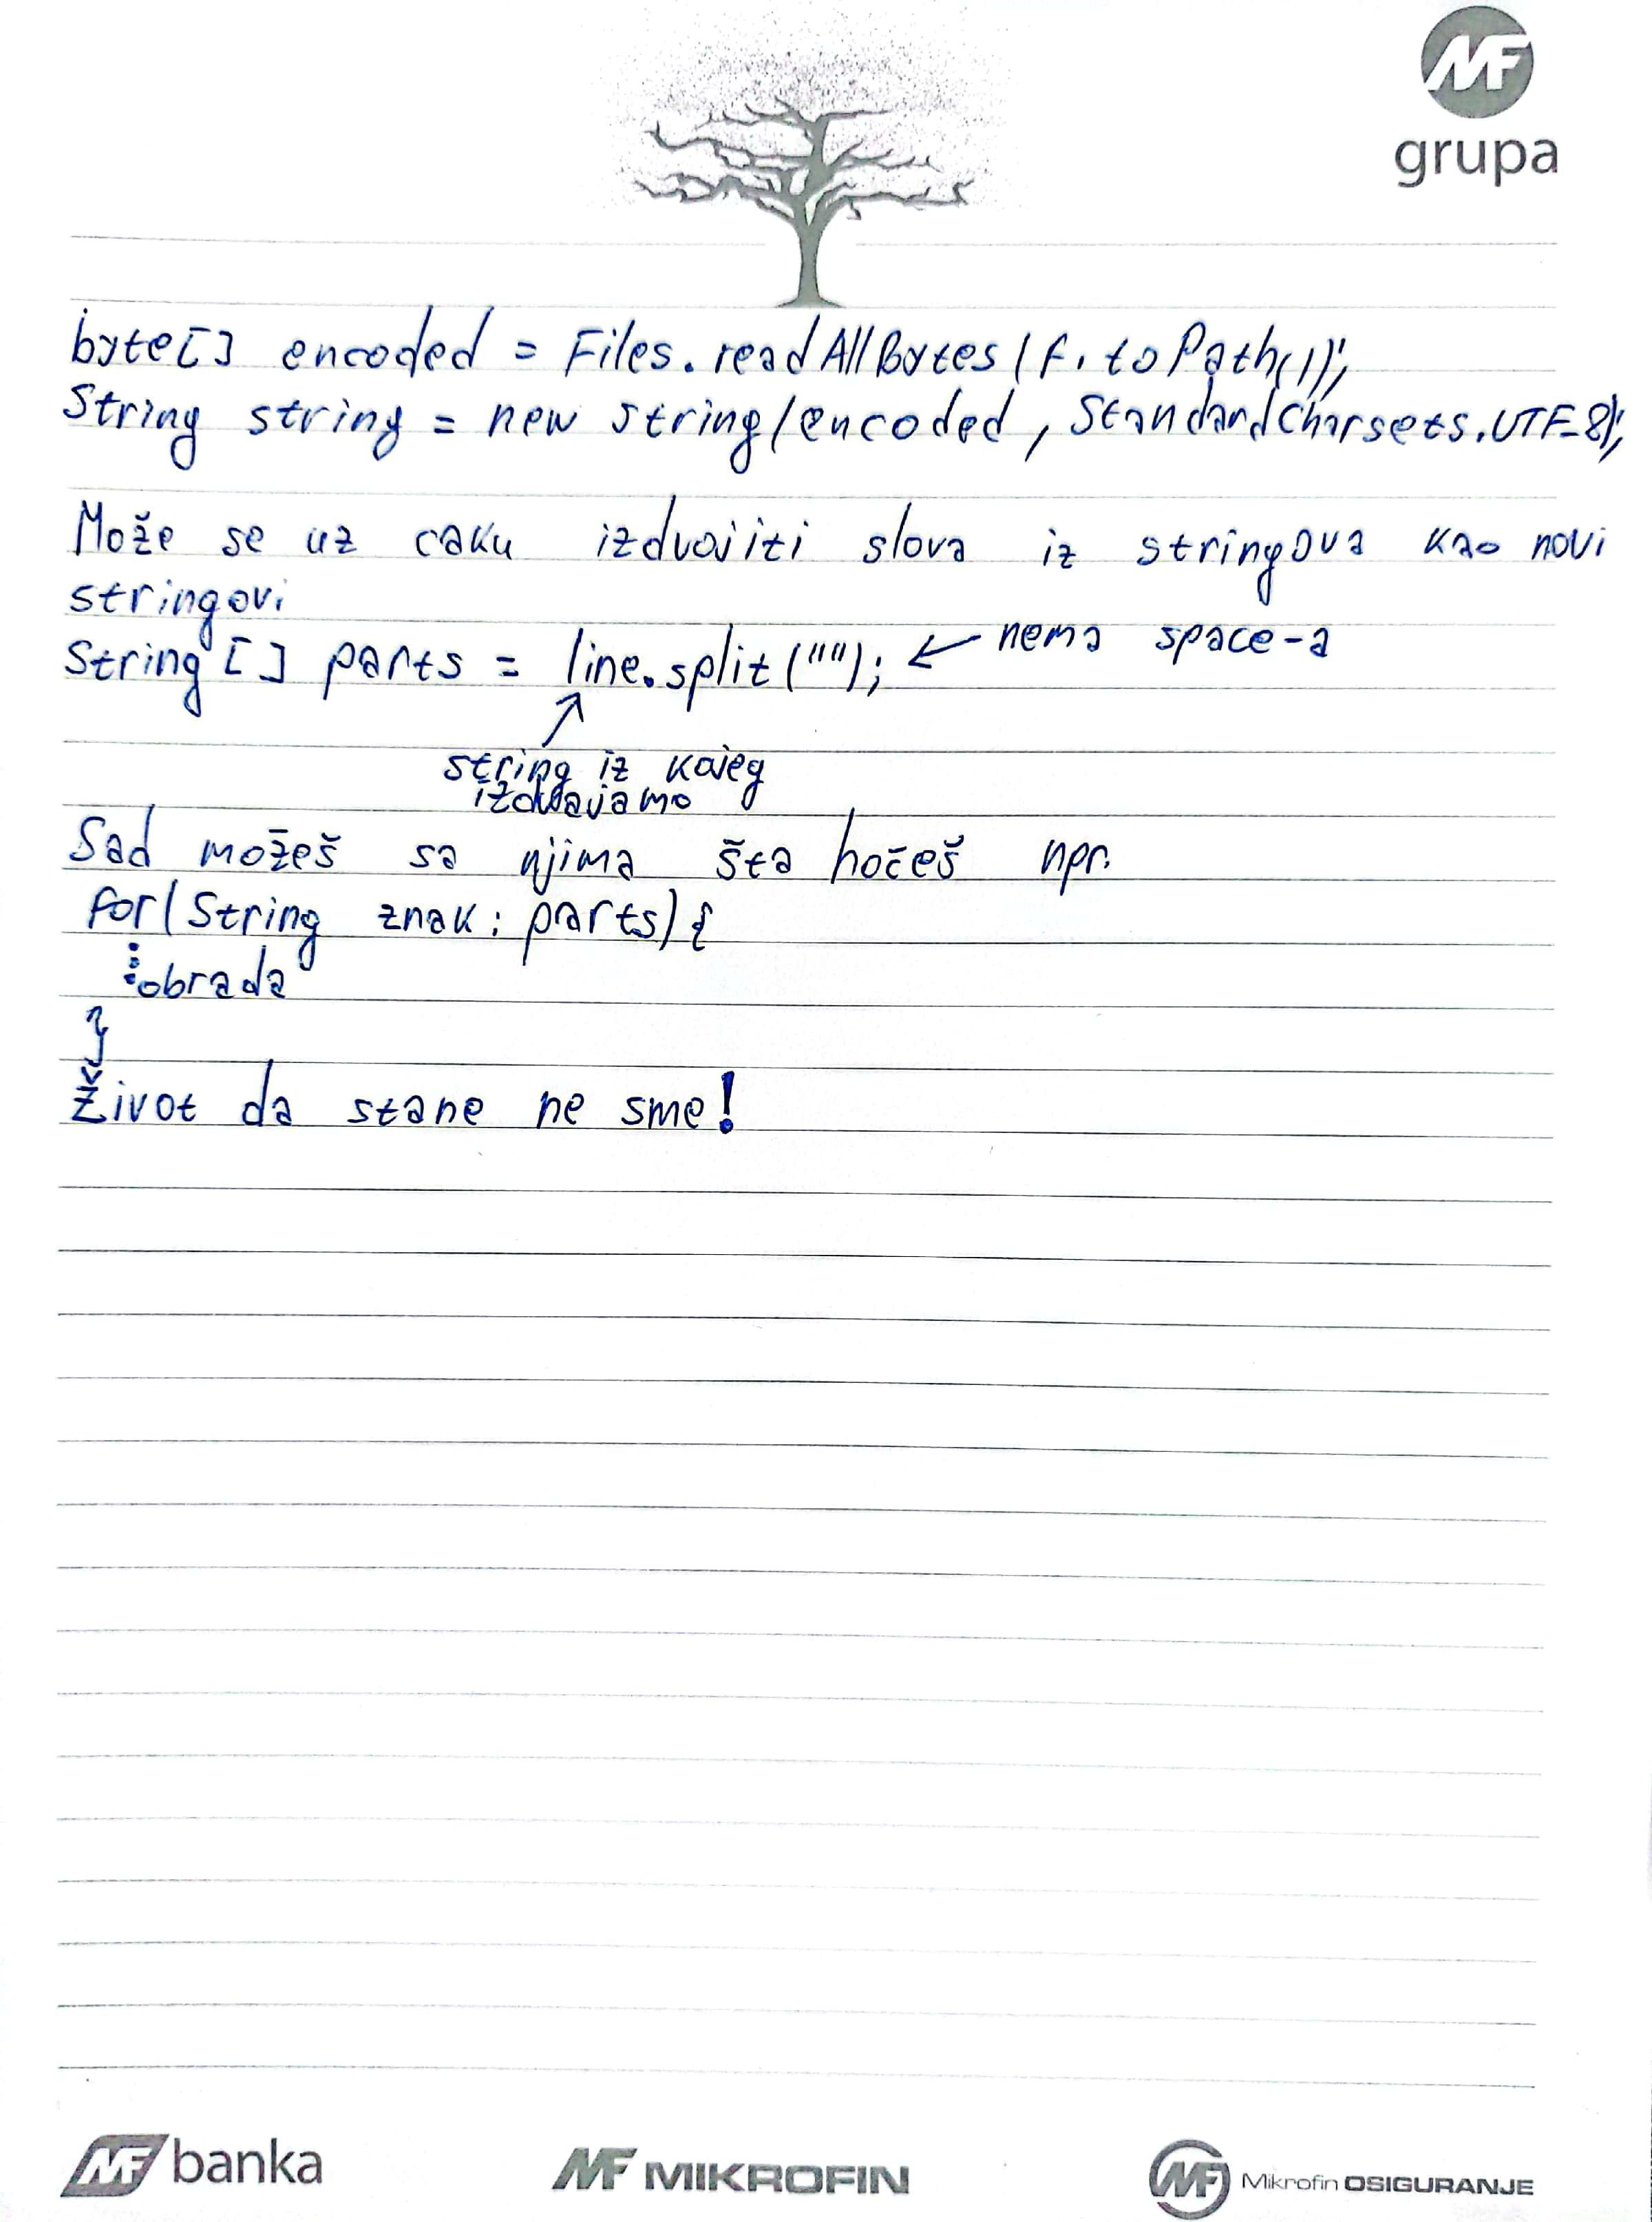 MF
grupa
byte[] encoded = Files.readAllBytes(f.toPath());
String string = new string(encoded, StandardCharsets.UTF-8);
Može se uz caku izdvojiti slova iz stringova kao novi
stringovi
String[] parts = line.split(""); ← nema space-a
↑
string iz kojeg
izdvajamo
Sad možeš sa njima šta hočeš npr.
for(String znak: parts){
⋮ obrada
}
Život da stane ne sme!
MF banka MF MIKROFIN MF Mikrofin OSIGURANJE